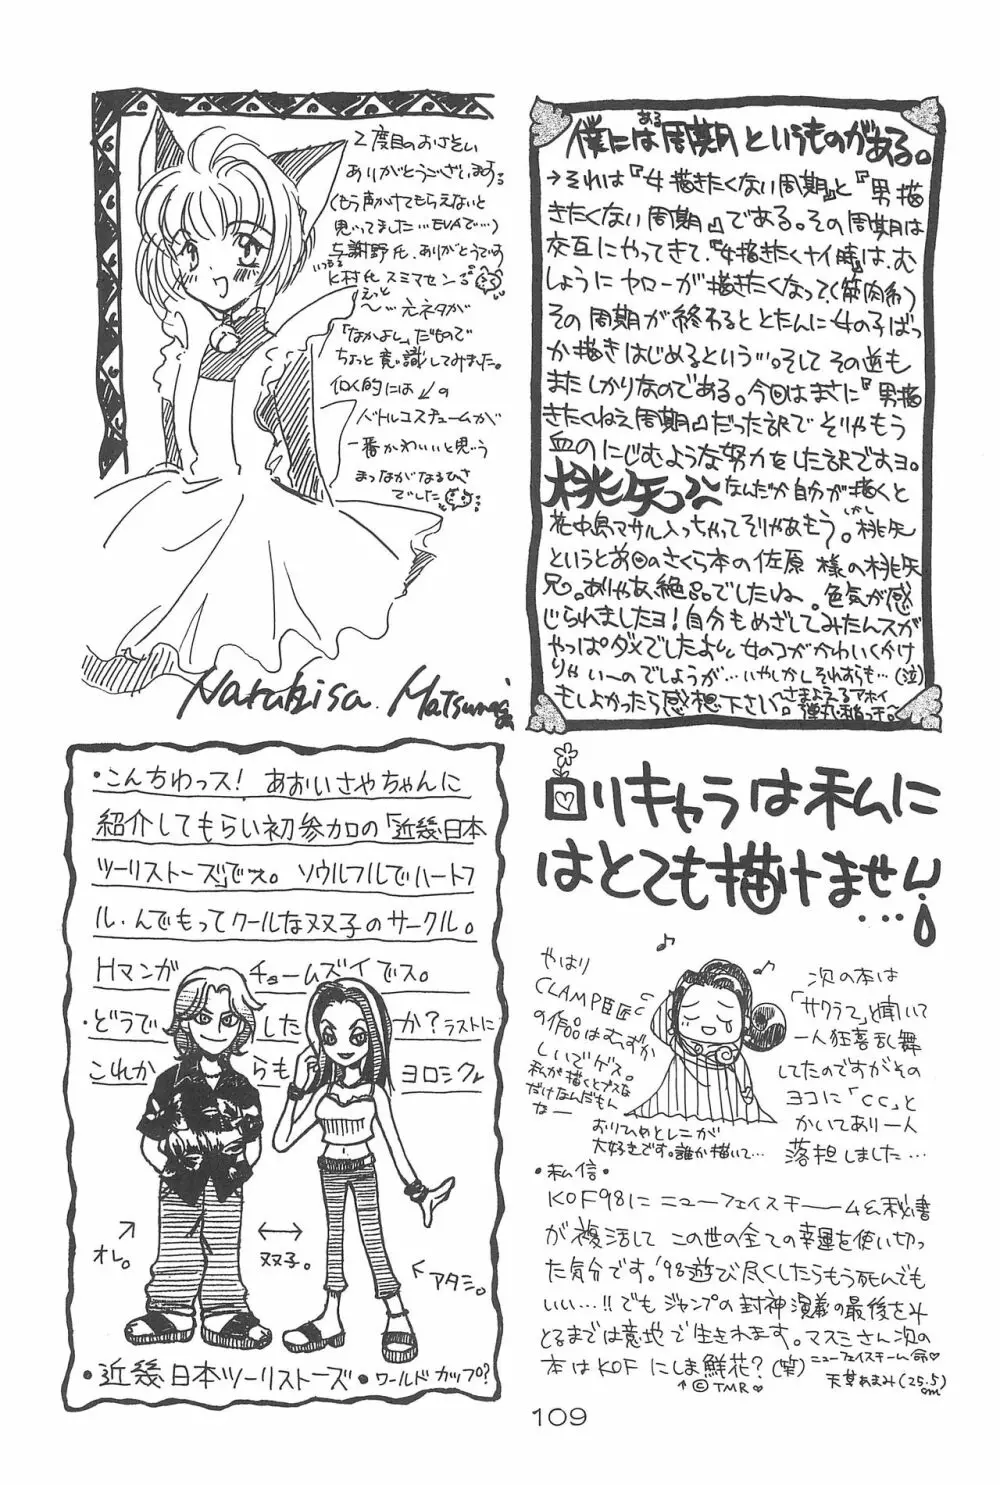 2度目のおさそい
ありがとうございまする
(もう声かけてもらえないと
思ってました…EVAで…)
与謝野氏、ありがとうでした
いつも
K村氏 スミマセンする
えっと
〜…元ネタが
「なかよし」だもので
ちょっと意識してみました。
似く的には ↙の
バトルコスチュームが
一番かわいいと思う
まっながなるひさ
でした
Naruhisa Matsunaga
ある
僕には周期というものがある。
→それは『女描きたくない周期』と『男描
きたくない周期』である。その周期は
交互にやってきて、『女描きたくナイ時』は、む
しょうにヤローが描きたくなって(筋肉希)
その周期が終わるととたんに女の子ばっ
か描きはじめるという…。そしてその逆も
またしかりなのである。今回はまさに『男描
きたくねえ周期』だった訳でそりゃもう
血のにじむような努力をした訳ですヨ。
桃矢っ なんだか自分が描くと
花中島マサル入っちゃってそりゃあもう。しかし桃矢
というと前回のさくら本の佐原 様の桃矢
兄。ありゃあ、絶品でしたね。色気が感
じられましたヨ!自分もめざしてみたんスが
やっぱダメでしたよ。女のコがかわいくかけ
りゃいーのでしょうが…いやしかしそれすらも…(泣)
もしよかったら感想下さい。
〜さまよえるアホイ
弾丸稲っ子。〜
・こんちわっス! あおいさやちゃんに
紹介してもらい初参加の「近畿日本
ツーリストーズ」でス。 ソウルフルでハートフ
ル・んでもってクールな双子のサークル。
Hマンガ チョームズイでス。
・どうで した か?ラストに
これか らも ヨロシクレ
オレ。
双子。
アタシ。
・近畿日本ツーリストーズ・ワールドカップ?
ロリキャラは私に
はとても描けません!…
♪
♪
やはり
CLAMP巨匠
の作品はむずか
しいでゲス。
私が描くとブスな
だけなんだもん
なー
おりひめとレニが
大好きです。誰か描いて…
次の本は
「サクラ?」と聞いて
一人狂喜乱舞
してたのですがその
ヨコに「CC」と
かいてあり一人
落担しました…
・私信・
KOF98にニューフェイスチームと秘書
が復活して この世の全ての幸運を使い切っ
た気分です。'98遊び尽くしたらもう死んでも
いい…!!でもジャンプの封神演義の最後を斗
とるまでは意地で生きれます。マスミさん次の
本はKOFにしま鮮花?(笑)
↑©TMR♡
ニューフェイスチーム命♡
天草あまみ(25.5)cm
109